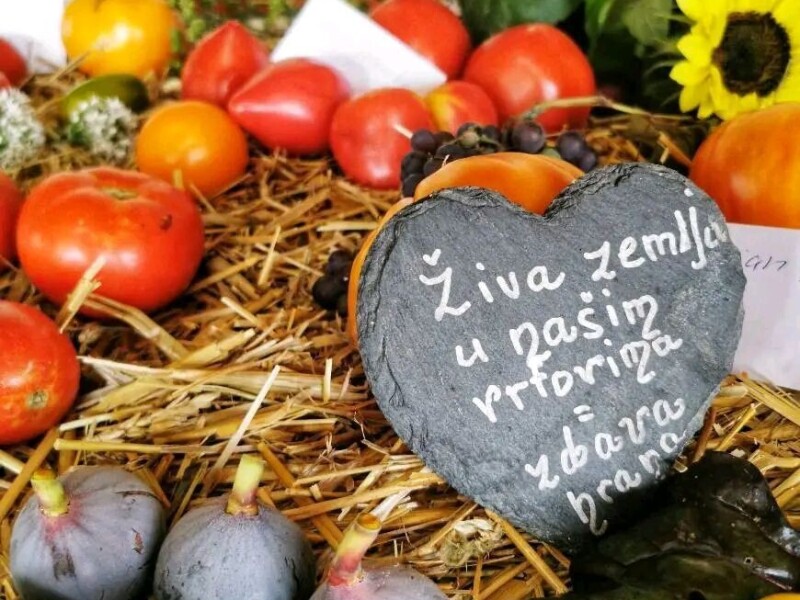 Živa zemlja
u našim
vrtovima
=
zdrava
hrana